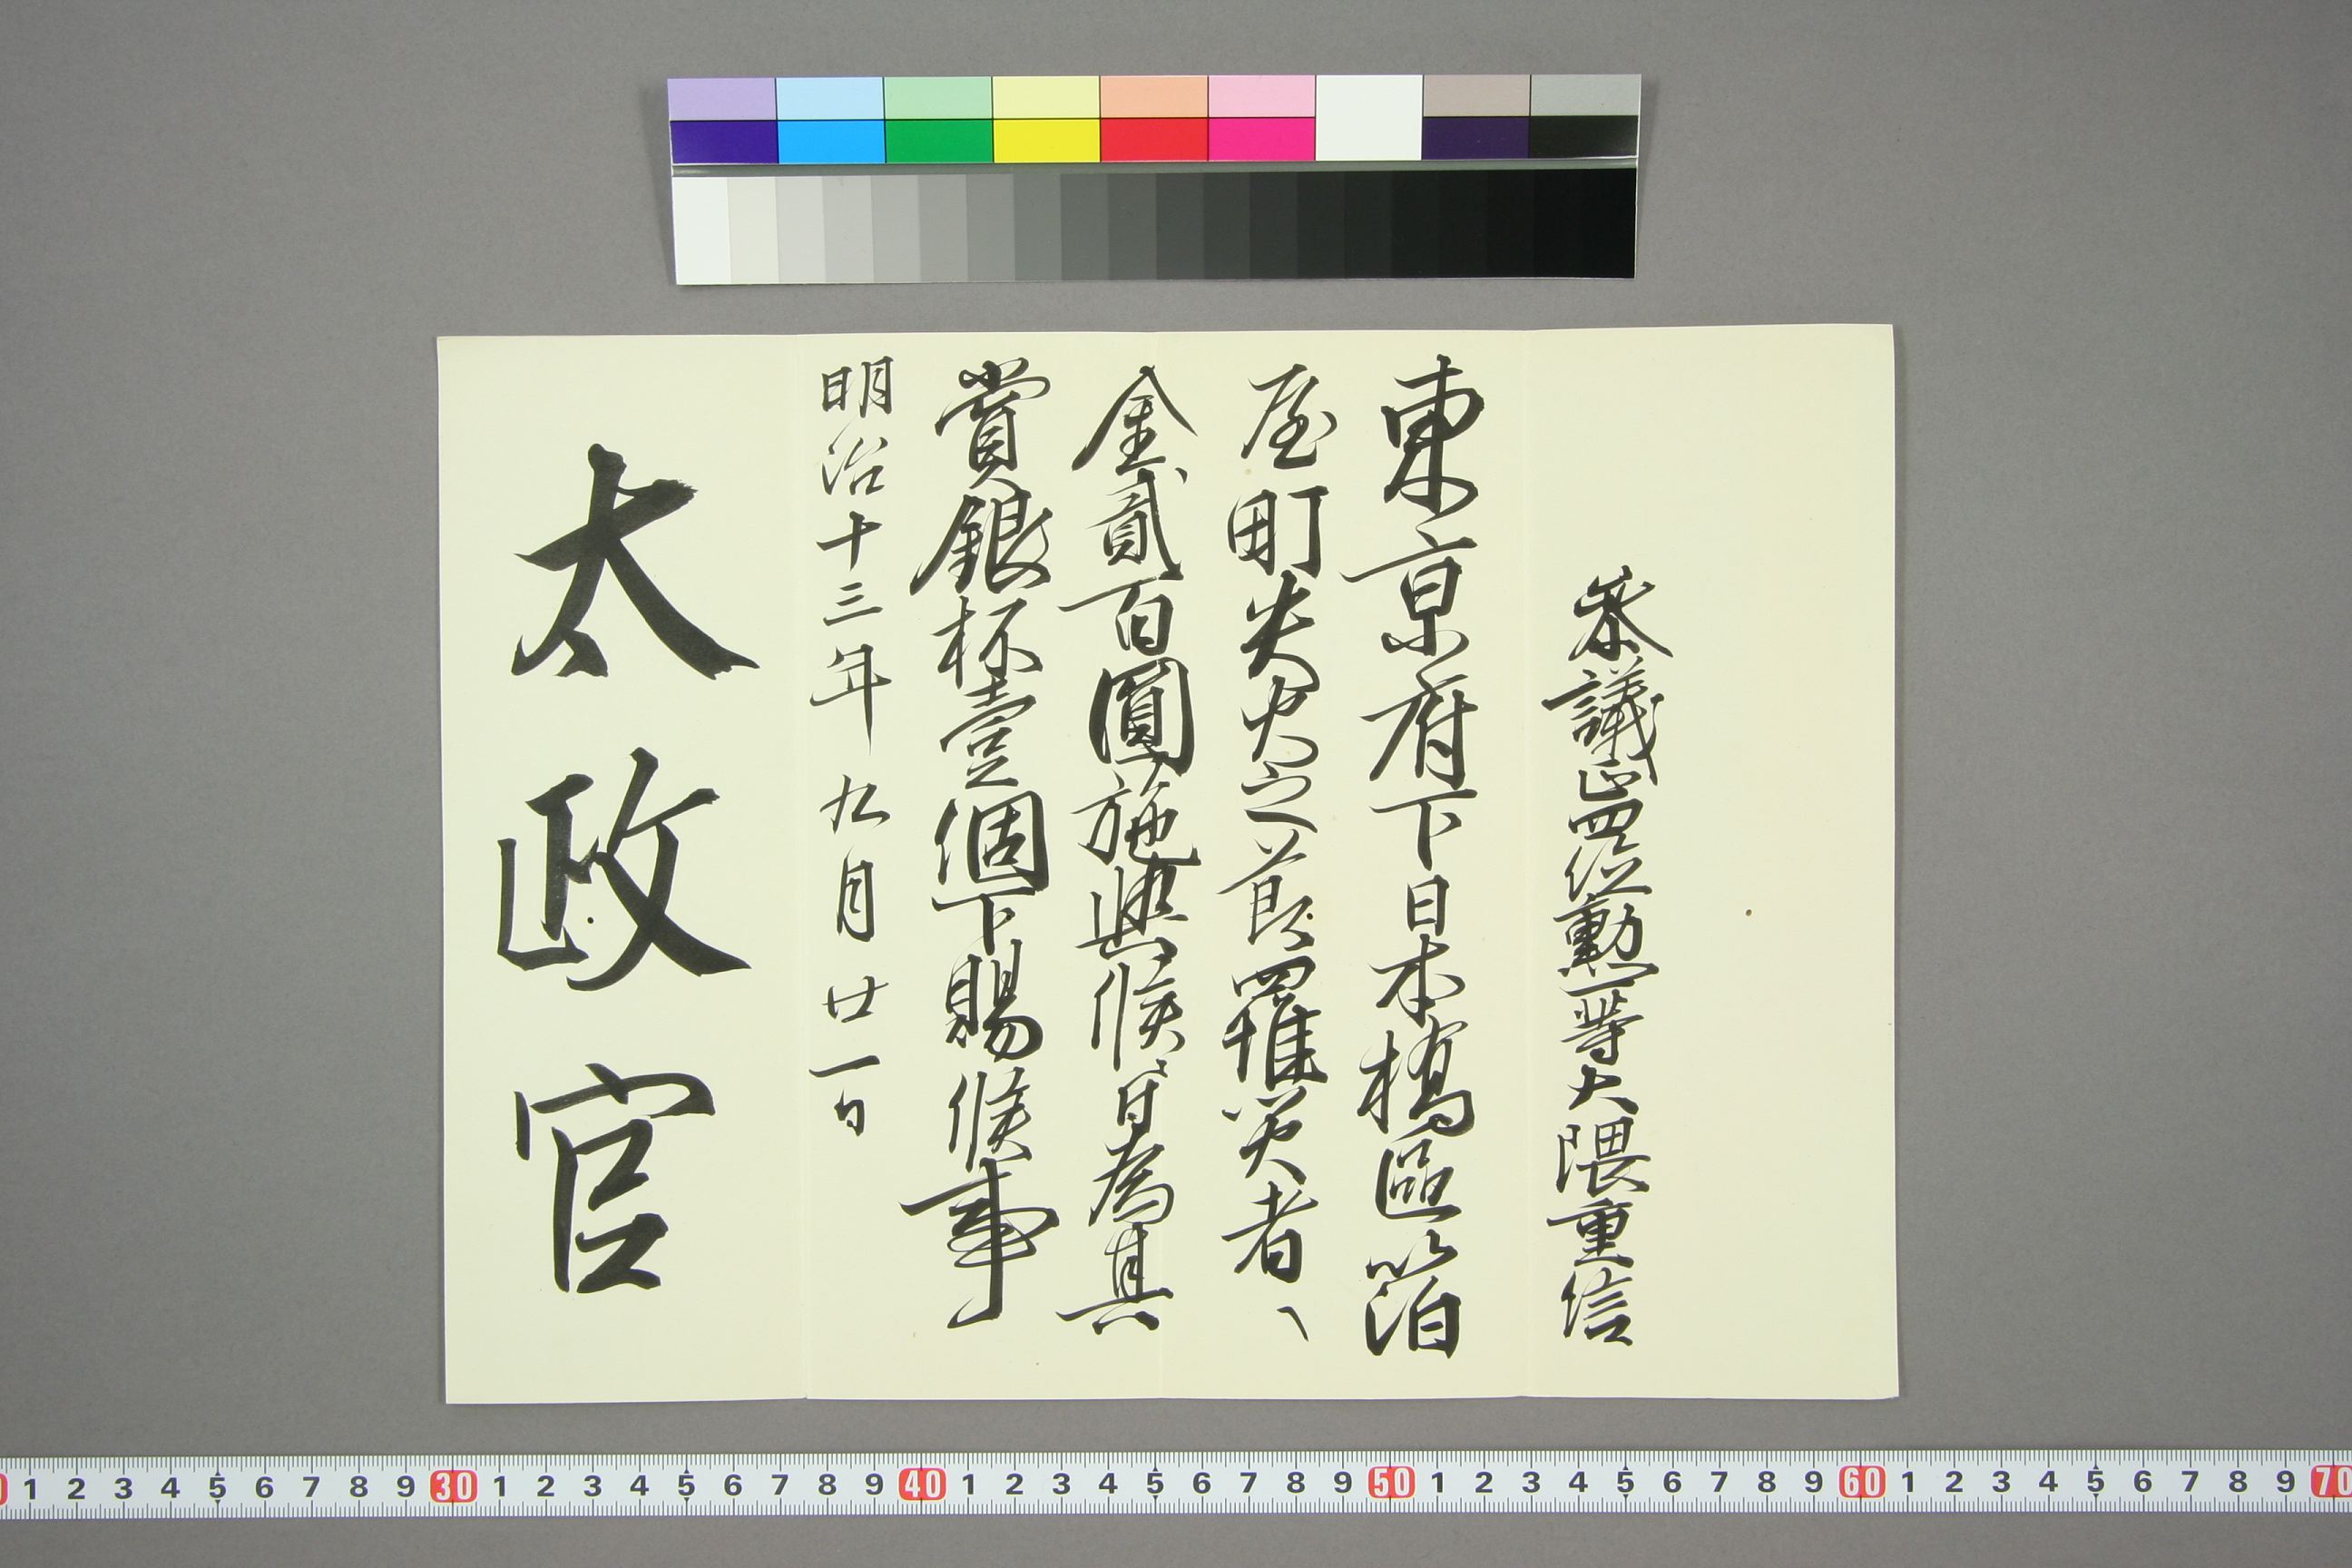 参議正四位勲一等大隈重信
東京府下日本橋區箔
屋町失火之節罹災者ヘ
金貳百圓施與候旨為其
賞銀杯壹個下賜候事
明治十三年九月廿一日
太政官
1 2 3 4 5 6 7 8 9 30 1 2 3 4 5 6 7 8 9 40 1 2 3 4 5 6 7 8 9 50 1 2 3 4 5 6 7 8 9 60 1 2 3 4 5 6 7 8 9 70